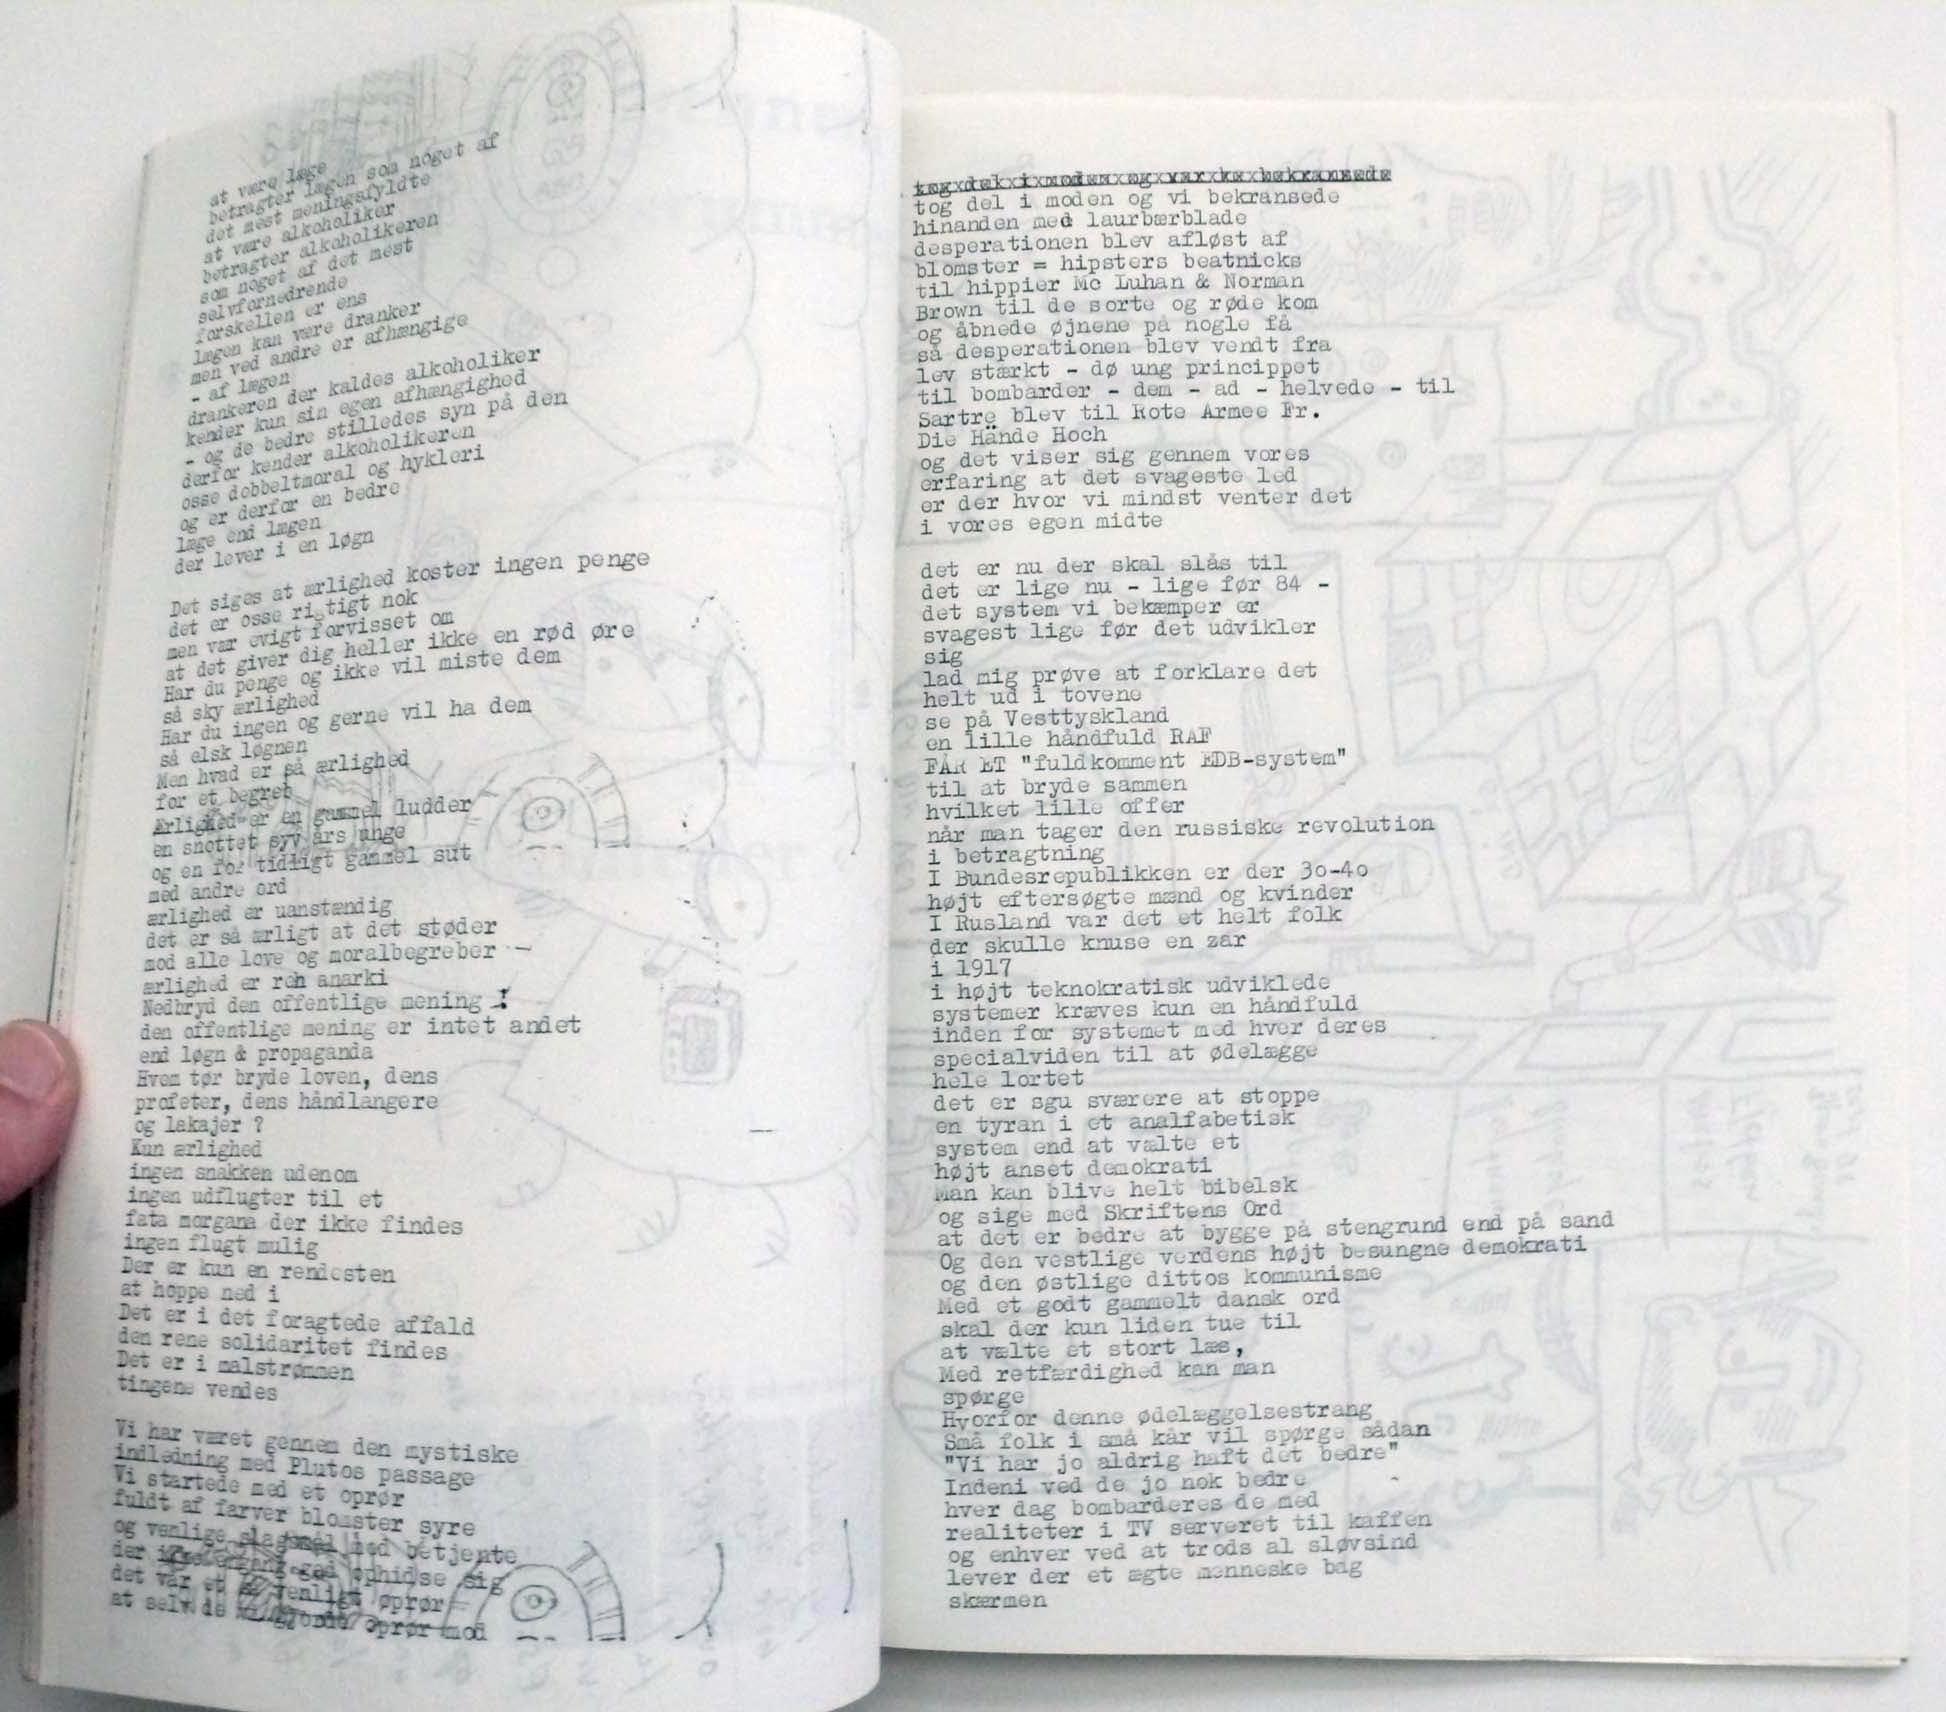 at være læge
betragter lægen som noget af
det mest meningsfyldte
at være alkoholiker
betragter alkoholikeren
som noget af det mest
selvfornedrende
forskellen er ens
lægen kan være dranker
men ved andre er afhængige
- af lægen
drankeren der kaldes alkoholiker
kender kun sin egen afhængighed
- og de bedre stilledes syn på den
derfor kender alkoholikeren
osse dobbeltmoral og hykleri
og er derfor en bedre
læge end lægen
der lever i en løgn
Det siges at ærlighed koster ingen penge
det er osse rigtigt nok
men vær evigt forvisset om
at det giver dig heller ikke en rød øre
Har du penge og ikke vil miste dem
så sky ærlighed
Har du ingen og gerne vil ha dem
så elsk løgnen
Men hvad er så ærlighed
for et begreb
Ærlighed er en gammel ludder
en snottet syv års unge
og en for tidligt gammel sut
med andre ord
ærlighed er uanstændig
det er så ærligt at det støder
mod alle love og moralbegreber -
ærlighed er ren anarki
Nedbryd den offentlige mening !
den offentlige mening er intet andet
end løgn & propaganda
Hvem tør bryde loven, dens
profeter, dens håndlangere
og lakajer ?
Kun ærlighed
ingen snakken udenom
ingen udflugter til et
fata morgana der ikke findes
ingen flugt mulig
Der er kun en rendesten
at hoppe ned i
Det er i det foragtede affald
den rene solidaritet findes
Det er i malstrømmen
tingene vendes
Vi har været gennem den mystiske
indledning med Plutos passage
Vi startede med et oprør
fuldt af farver blomster syre
og venlige slagsmål med betjente
der ikke engang gad ophidse sig
det var et så venligt oprør
at selv de vi gjorde oprør mod
tog del i moden og var bekransede
tog del i moden og vi bekransede
hinanden med laurbærblade
desperationen blev afløst af
blomster = hipsters beatnicks
til hippier Mc Luhan & Norman
Brown til de sorte og røde kom
og åbnede øjnene på nogle få
så desperationen blev vendt fra
lev stærkt - dø ung princippet
til bombarder - dem - ad - helvede - til
Sartre blev til Rote Armee Fr.
Die Hände Hoch
og det viser sig gennem vores
erfaring at det svageste led
er der hvor vi mindst venter det
i vores egen midte
det er nu der skal slås til
det er lige nu - lige før 84 -
det system vi bekæmper er
svagest lige før det udvikler
sig
lad mig prøve at forklare det
helt ud i tovene
se på Vesttyskland
en lille håndfuld RAF
FÅR ET "fuldkomment EDB-system"
til at bryde sammen
hvilket lille offer
når man tager den russiske revolution
i betragtning
I Bundesrepublikken er der 3o-4o
højt eftersøgte mænd og kvinder
I Rusland var det et helt folk
der skulle knuse en zar
i 1917
i højt teknokratisk udviklede
systemer kræves kun en håndfuld
inden for systemet med hver deres
specialviden til at ødelægge
hele lortet
det er sgu sværere at stoppe
en tyran i et analfabetisk
system end at vælte et
højt anset demokrati
Man kan blive helt bibelsk
og sige med Skriftens Ord
at det er bedre at bygge på stengrund end på sand
Og den vestlige verdens højt besungne demokrati
og den østlige dittos kommunisme
Med et godt gammelt dansk ord
skal der kun liden tue til
at vælte et stort læs,
Med retfærdighed kan man
spørge
Hvorfor denne ødelæggelsestrang
Små folk i små kår vil spørge sådan
"Vi har jo aldrig haft det bedre"
Indeni ved de jo nok bedre
hver dag bombarderes de med
realiteter i TV serveret til kaffen
og enhver ved at trods al sløvsind
lever der et ægte menneske bag
skærmen